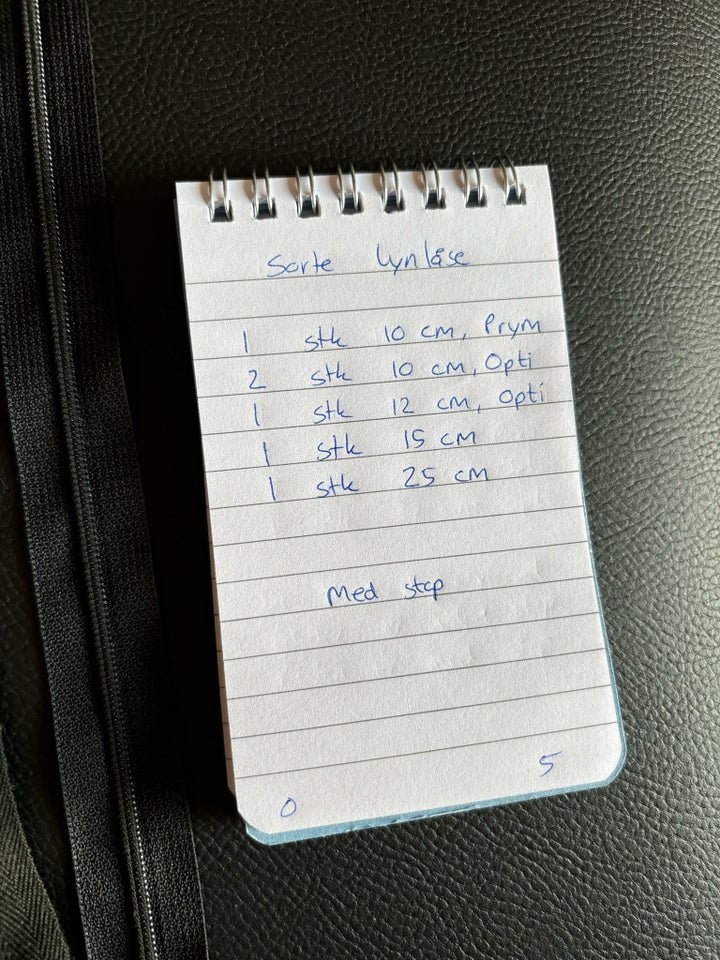 Sorte Lynlåse
1 stk 10 cm, Prym
2 stk 10 cm, Opti
1 stk 12 cm, Opti
1 stk 15 cm
1 stk 25 cm
Med stop
0 5